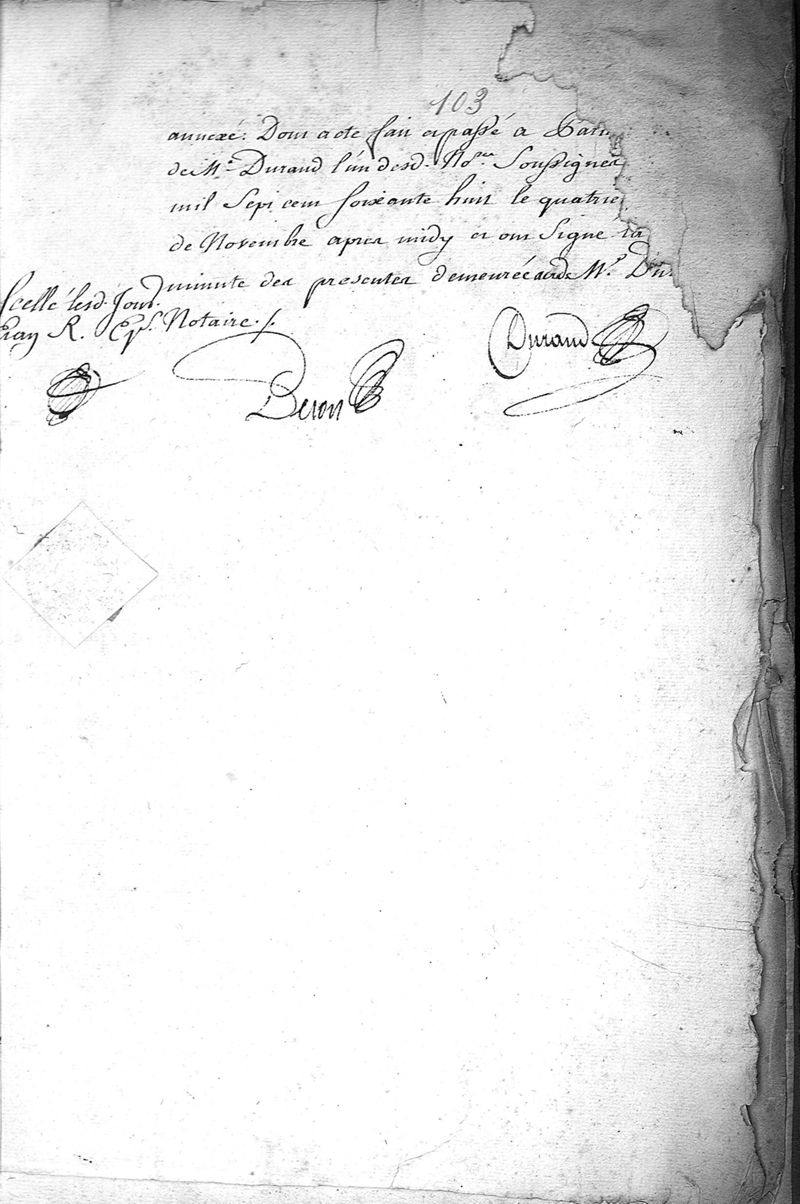 103
annexé. Dont acte fait et passé a Paris
de Mᵉ Durand l'un desd. Noʳᵉˢ Soussignés
mil Sept cent soixante huit le quatrie
de Novembre apres midy et ont Signé la
minute des presentes demeurée aud. Mᵉ Du
scellé lesd. Jour
R. Notaire ./.
Durand